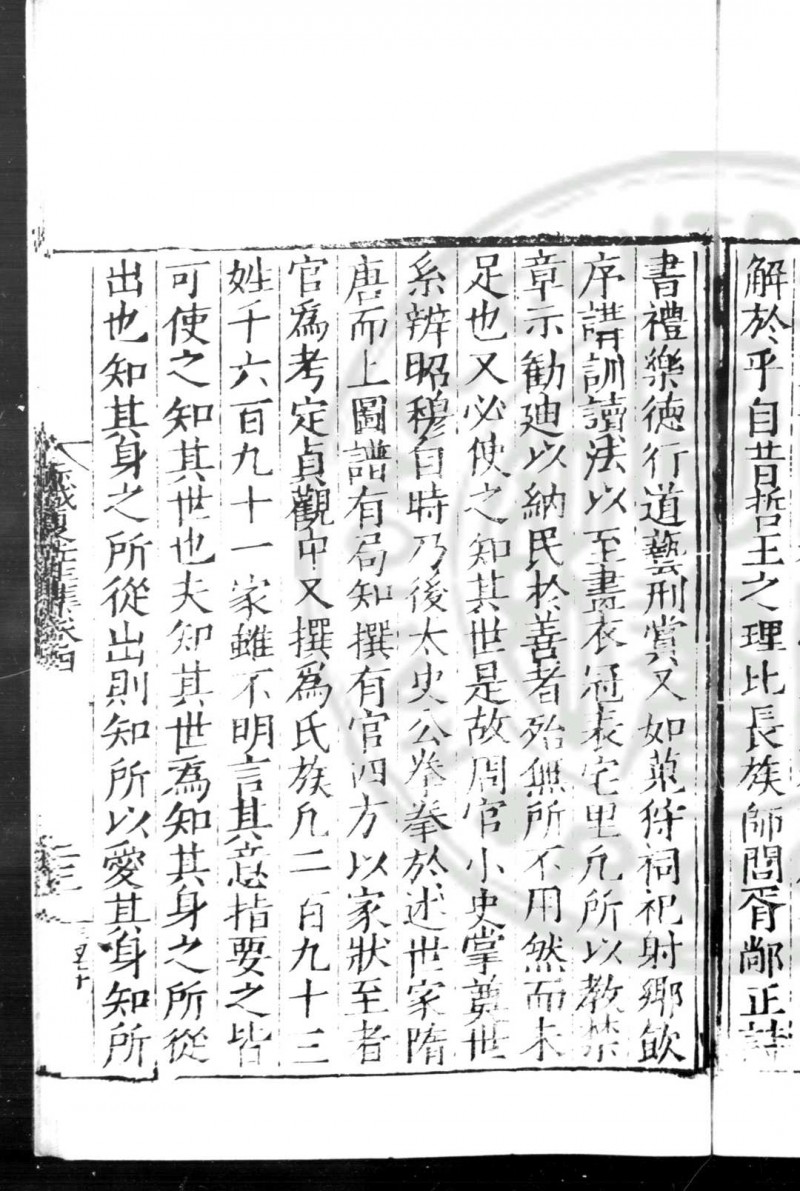 解於乎自昔哲王之理比長族師閭胥鄰正詩
書禮樂德行道藝刑賞又如蒐狩祠祀射鄉飲
序講訓讀法以至畫衣冠表宅里凡所以教禁
章示勸廸以納民於善者殆無所不用然而未
足也又必使之知其世是故周官小史掌奠世
系辨昭穆自時乃後太史公拳拳於述世家隋
唐而上圖譜有局知撰有官四方以家狀至者
官為考定貞觀中又撰為氏族凡二百九十三
姓千六百九十一家雖不明言其意指要之皆
可使之知其世也夫知其世為知其身之所從
出也知其身之所從出則知所以愛其身知所